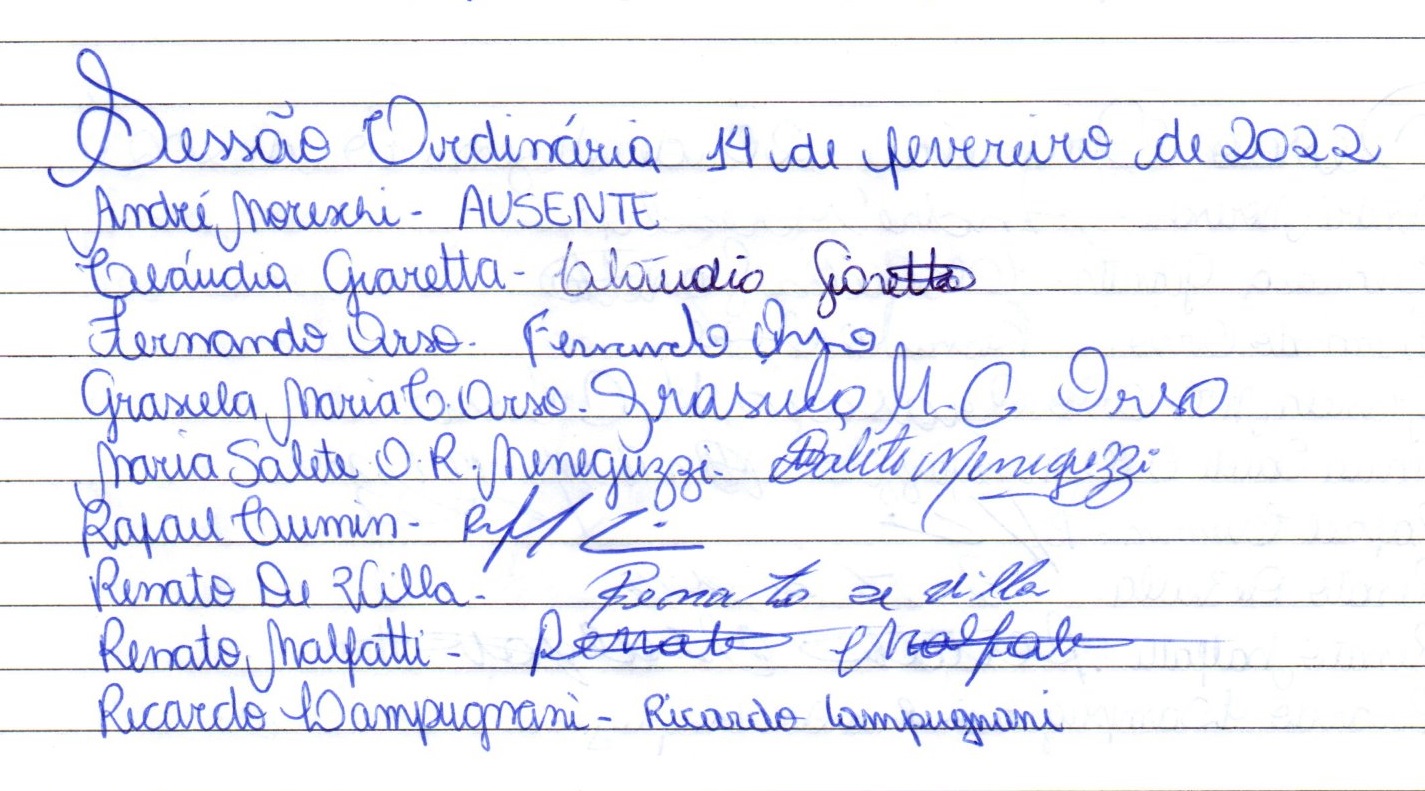 Sessão Ordinária 14 de fevereiro de 2022
André Moreschi - AUSENTE
Cláudia Giaretta - Claúdia Giaretta
Fernando Orso. Fernando Orso
Grasiela Maria C. Orso. Grasiela M. C. Orso
Maria Salete O. R. Meneguzzi. Salete Meneguzzi
Rafael Cumin -
Renato De Villa - Renato de villa
Renato Malfatti - Renato Malfatti
Ricardo Lampugnani - Ricardo Lampugnani